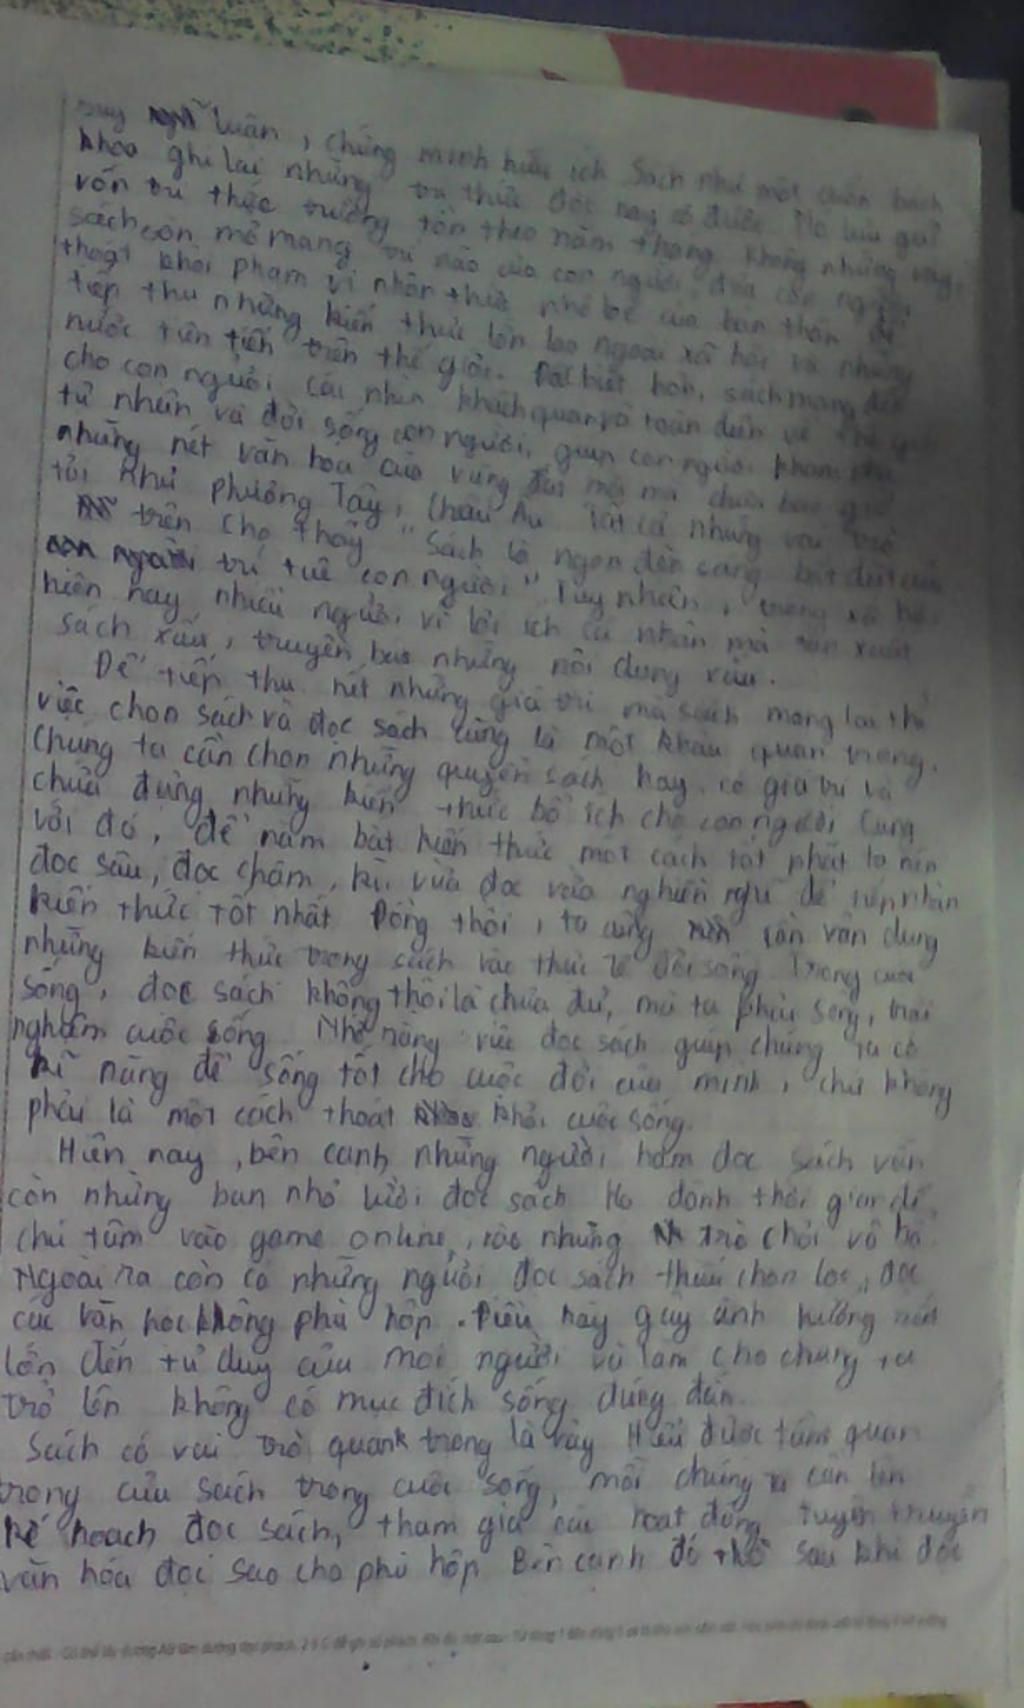 luận, chứng minh hữu ích Sách như một cuốn bách
khoa ghi lại những tri thức
vốn tri thức trường tồn theo năm tháng không những vậy,
sách còn mở mang trí não của con người, đưa con người
thoát khỏi phạm vi nhận thức nhỏ bé của bản thân để
tiếp thu những kiến thức lớn lao ngoài xã hội và những
nước tiên tiến trên thế giới. Đặc biệt hơn, sách mang đến
cho con người cái nhìn khách quan và toàn diện về thế giới
tự nhiên và đời sống con người, giúp con người khám phá
những nét văn hoá của vùng đất mới mà chưa bao giờ
tới như phương Tây, Châu Âu Tất cả những vai trò
trên cho thấy "Sách là ngọn đèn sáng bất diệt của
trí tuệ con người" Tuy nhiên, trong xã hội
hiện nay nhiều người vì lợi ích cá nhân mà sản xuất
sách xấu, truyền bá những nội dung xấu.
Để tiếp thu hết những giá trị mà sách mang lại thì
việc chọn sách và đọc sách cũng là một khâu quan trọng.
Chúng ta cần chọn những quyển sách hay, có giá trị và
chứa đựng những kiến thức bổ ích cho con người Cùng
với đó, để nắm bắt kiến thức một cách tốt phất ta nên
đọc sâu, đọc chậm, kĩ, vừa đọc vừa nghiền ngẫm để tiếp nhận
kiến thức tốt nhất Đồng thời, ta cũng cần vận dụng
những kiến thức trong sách vào thực tế đời sống Trong cuộc
sống, đọc sách không thôi là chưa đủ, mà ta phải sống, trải
nghiệm cuộc sống Nhớ rằng việc đọc sách giúp chúng ta có
kĩ năng để sống tốt cho cuộc đời của mình, chứ không
phải là một cách thoát khỏi cuộc sống.
Hiện nay, bên cạnh những người ham đọc sách vẫn
còn những bạn nhỏ lười đọc sách Họ dành thời gian để
chú tâm vào game online, vào những trò chơi vô bổ
Ngoài ra còn có những người đọc sách thiếu chọn lọc, đọc
các văn hoá không phù hợp. Điều này gây ảnh hưởng
lớn đến tư duy của mọi người và làm cho chúng ta
trở lên không có mục đích sống đúng đắn.
Sách có vai trò quank trọng là vậy Hiểu được tầm quan
trọng của sách trong cuộc sống, mỗi chúng ta cần lên
kế hoạch đọc sách, tham gia các hoạt động tuyên truyền
văn hóa đọc sao cho phù hợp Bên cạnh đó thì sau khi đọc